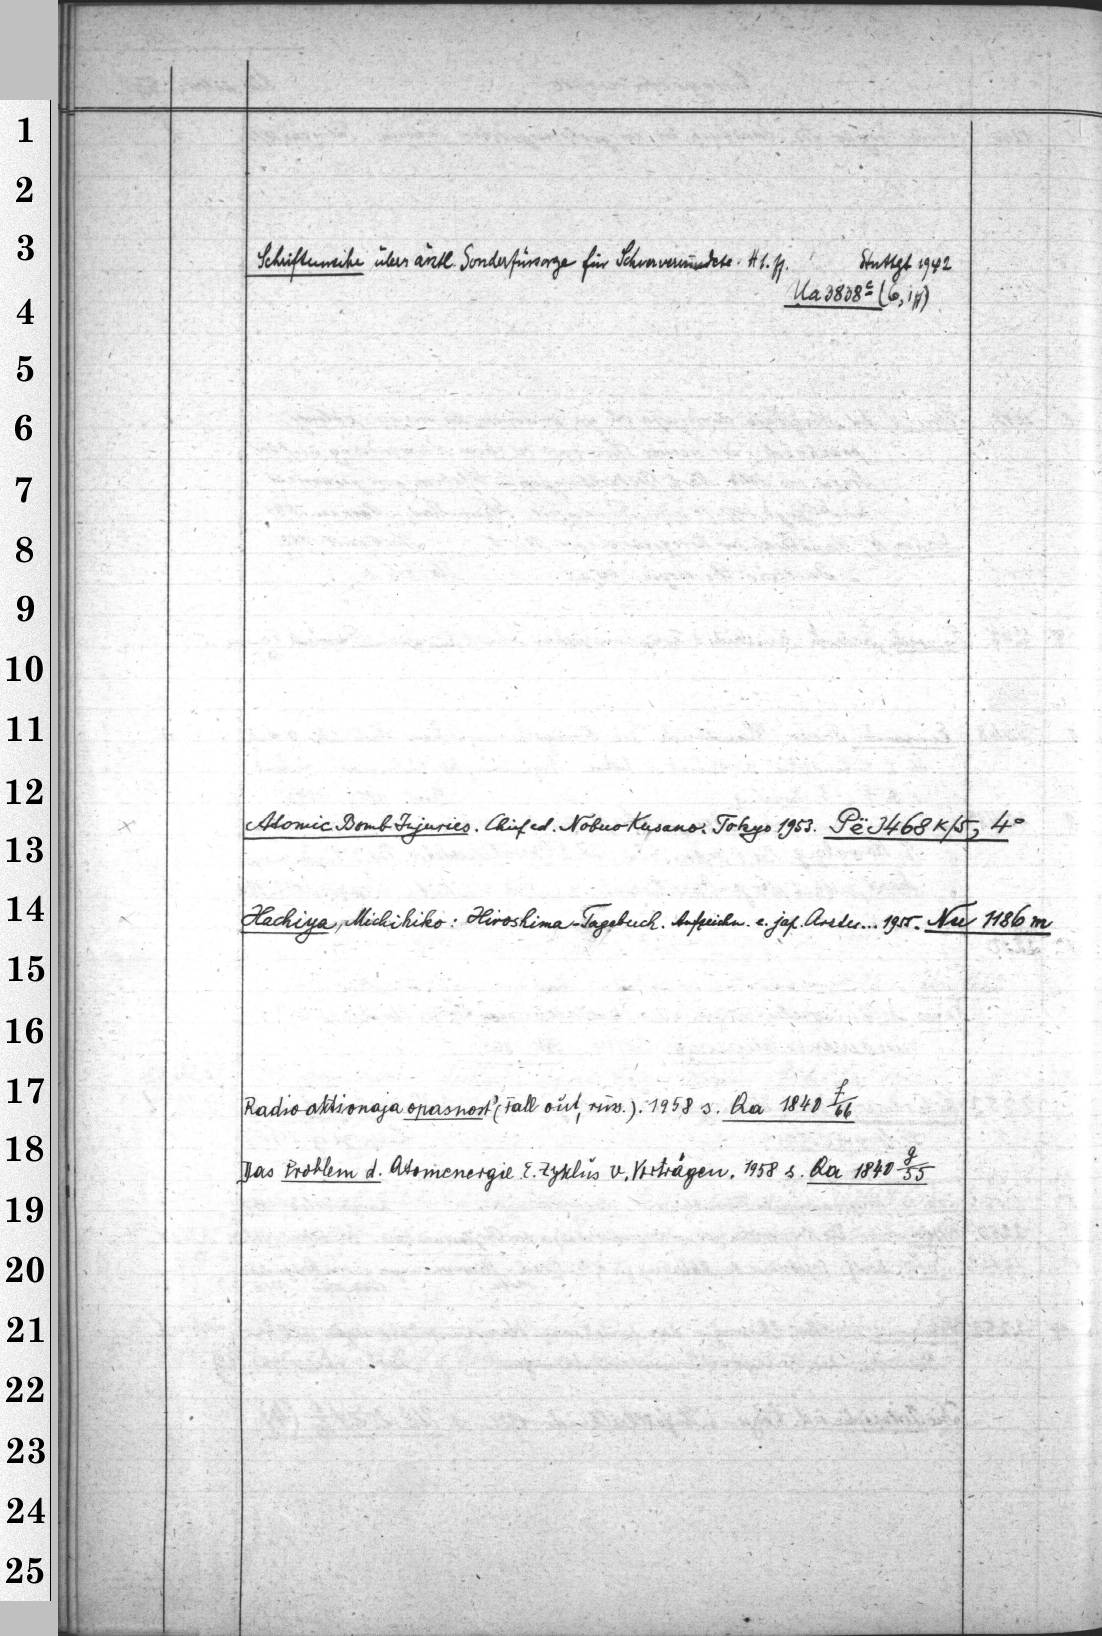 1
2
3
Schriftenreihe übers ärztl. Sonderfürsorge für Schwerverwundete. H 1. ff. Stuttgt 1942
Ua 3838 c (6, 1 ff)
4
5
6
7
8
9
10
11
12
Atomic Bomb Injuries. Chief ed. Nobuo Kusano. Tokyo 1953. Pë 3468 k/5, 4°
13
14
Hachiya, Michihiko: Hiroshima-Tagebuch. Aufzeichn. e. jap. Arztes... 1955. Nu 1186 m
15
16
17
Radioaktionaja opasnost' (Fall out, russ.). 1958 s. Qa 1840 f/66
18
Das Problem d. Atomenergie. E. Zyklus v. Vorträgen. 1958 s. Qa 1840 g/55
19
20
21
22
23
24
25